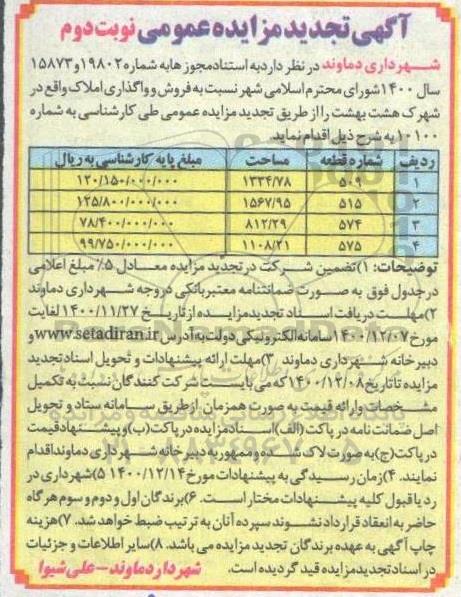 آگهی تجدید مزایده عمومی نوبت دوم
شهرداری دماوند در نظر دارد به استناد مجوزها به شماره ۱۹۸۰۲ و ۱۵۸۷۳
سال ۱۴۰۰ شورای محترم اسلامی شهر نسبت به فروش و واگذاری املاک واقع در
شهرک هشت بهشت را از طریق تجدید مزایده عمومی طی کارشناسی به شماره
۱۰۱۰۰ به شرح ذیل اقدام نماید.
ردیف شماره قطعه مساحت مبلغ پایه کارشناسی به ریال
۱ ۵۰۹ ۱۳۳۴/۷۸ ۱۲۰/۱۵۰/۰۰۰/۰۰۰
۲ ۵۱۵ ۱۵۶۷/۹۵ ۱۲۵/۸۰۰/۰۰۰/۰۰۰
۳ ۵۷۴ ۸۱۲/۲۹ ۷۸/۴۰۰/۰۰۰/۰۰۰
۴ ۵۷۵ ۱۱۰۸/۲۱ ۹۹/۷۵۰/۰۰۰/۰۰۰
توضیحات: ۱)تضمین شرکت در تجدید مزایده معادل ۵٪ مبلغ اعلامی
در جدول فوق به صورت ضمانتنامه معتبر بانکی در وجه شهرداری دماوند
۲)مهلت دریافت اسناد تجدید مزایده از تاریخ ۱۴۰۰/۱۱/۲۷ لغایت
مورخ ۱۴۰۰/۱۲/۰۷ سامانه الکترونیکی دولت به آدرس www.setadiran.ir و
دبیرخانه شهرداری دماوند ۳)مهلت ارائه پیشنهادات و تحویل اسناد تجدید
مزایده تا تاریخ ۱۴۰۰/۱۲/۰۸ که می بایست شرکت کنندگان نسبت به تکمیل
مشخصات و ارائه قیمت به صورت همزمان از طریق سامانه ستاد و تحویل
اصل ضمانت نامه در پاکت (الف) اسناد مزایده در پاکت (ب) و پیشنهاد قیمت
در پاکت (ج) به صورت لاک شده و ممهور به دبیرخانه شهرداری دماوند اقدام
نمایند. ۴)زمان رسیدگی به پیشنهادات مورخ ۱۴۰۰/۱۲/۱۴ ۵)شهرداری در
رد یا قبول کلیه پیشنهادات مختار است. ۶)برندگان اول و دوم و سوم هرگاه
حاضر به انعقاد قرارداد نشوند سپرده آنان به ترتیب ضبط خواهد شد. ۷)هزینه
چاپ آگهی به عهده برندگان تجدید مزایده می باشد. ۸)سایر اطلاعات و جزئیات
در اسناد تجدید مزایده قید گردیده است.
شهردار دماوند – علی شیوا